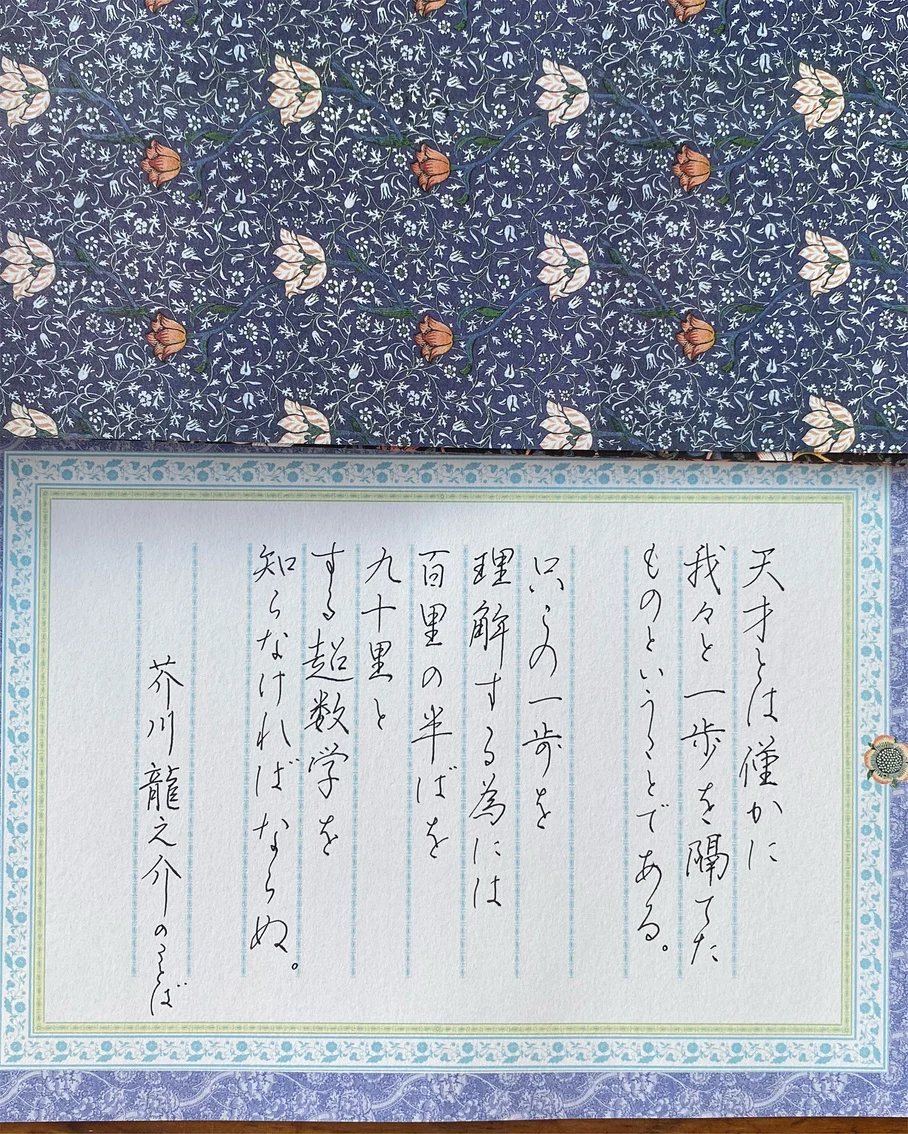 天才とは僅かに
我々と一歩を隔てた
ものということである。
只この一歩を
理解する為には
百里の半ばを
九十里と
する超数学を
知らなければならぬ。
芥川龍之介のことば